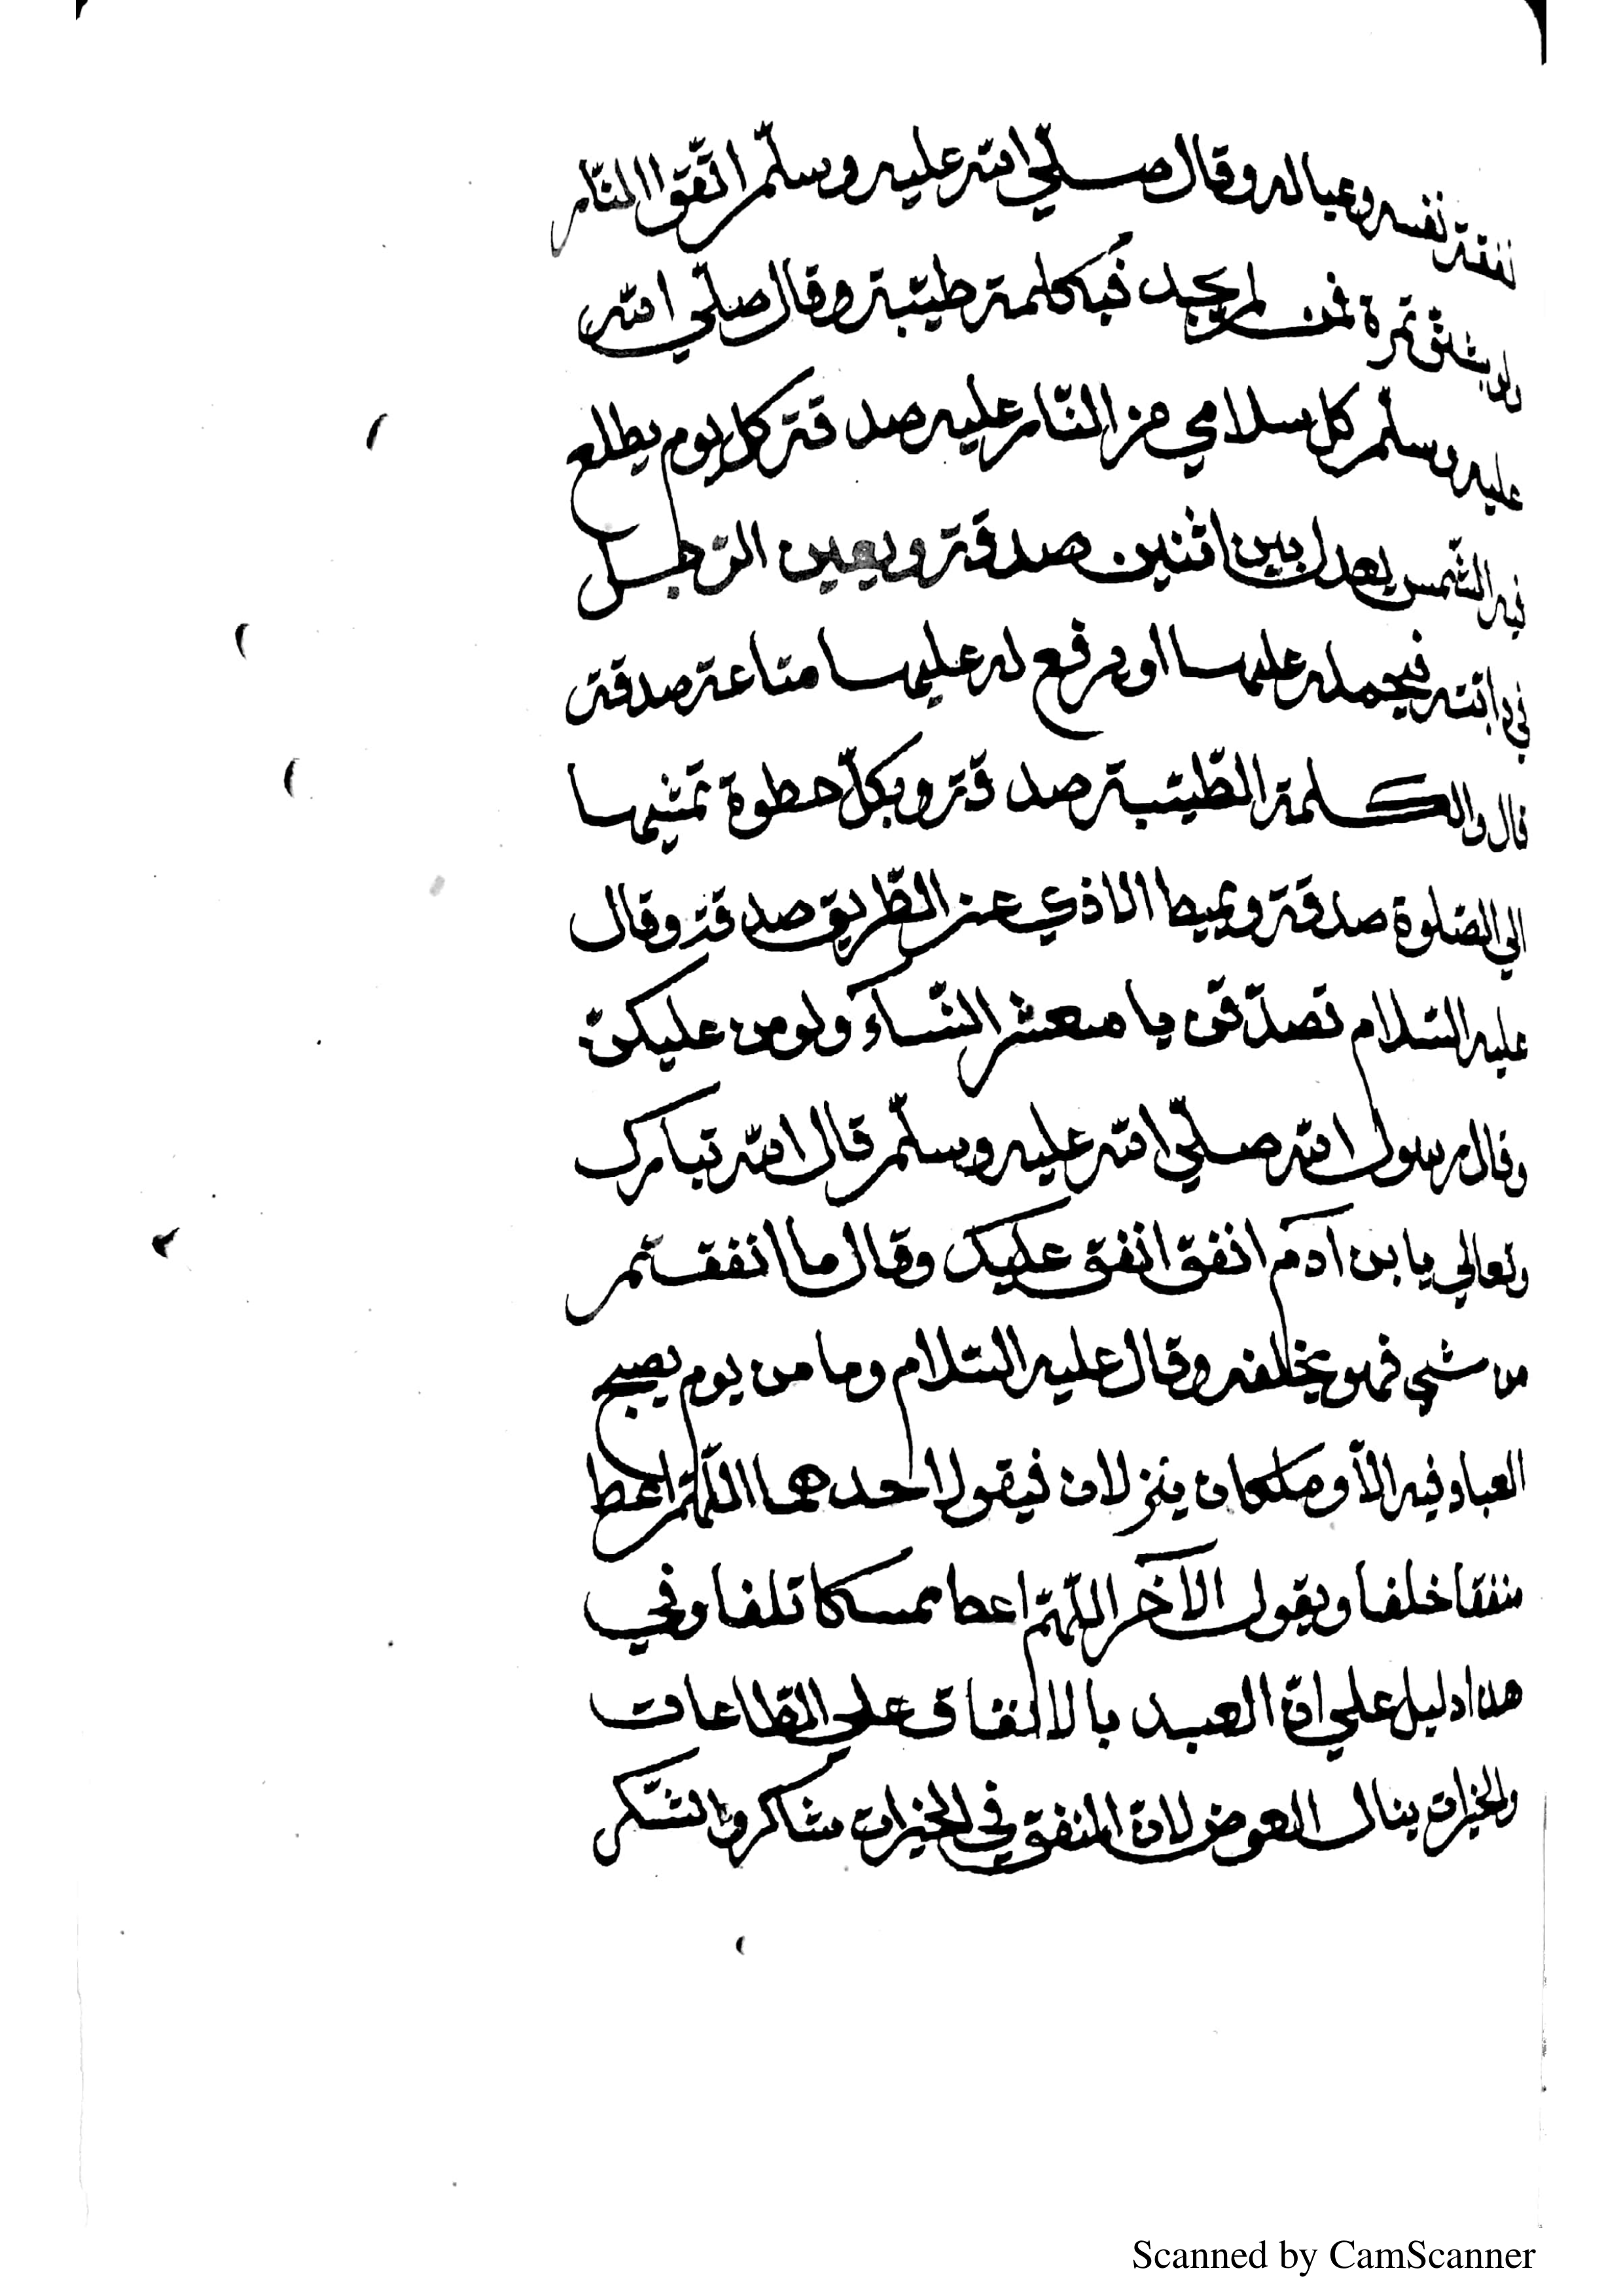 نفقة نفسه وعياله وقال صلّي الله عليه وسلّم اتّقوا النّار
ولو بشق تمرة فمن لم يجد فبكلمة طيّبة وقال صلّي الله
عليه وسلّم كل سلامي من النّاس عليه صدقة كل يوم يطلع
فيه الشّمس يعدل بين اثنين صدقة ويعين الرّجل
في دابّته فيحمله عليها او يرفع له عليها متاعه صدقة
قال والكلمة الطّيّبة صدقة وبكلّ خطوة تمشيها
الي الصّلوة صدقة ويميط الاذي عن الطّريق صدقة وقال
عليه السّلام تصدّقن يا معشر النّساء ولو من عليكنّ
وقال رسول الله صلّي الله عليه وسلّم قال الله تبارك
وتعالي يا بن آدم انفق انفق عليك وقال ما انفقتم
من شي فهو يخلفه وقال عليه السّلام وما من يوم يصبح
العباد فيه الاّ وملكان ينزلان فيقول احدهما اللّهمّ اعط
منفقا خلفا ويقول الآخر اللّهمّ اعط ممسكا تلفا وفي
هذا دليل علي انّ العبد بالانفاق علي الطّاعات
والخيرات ينال العوض لانّ المنفق في الخيرات شاكر والشّكر
Scanned by CamScanner